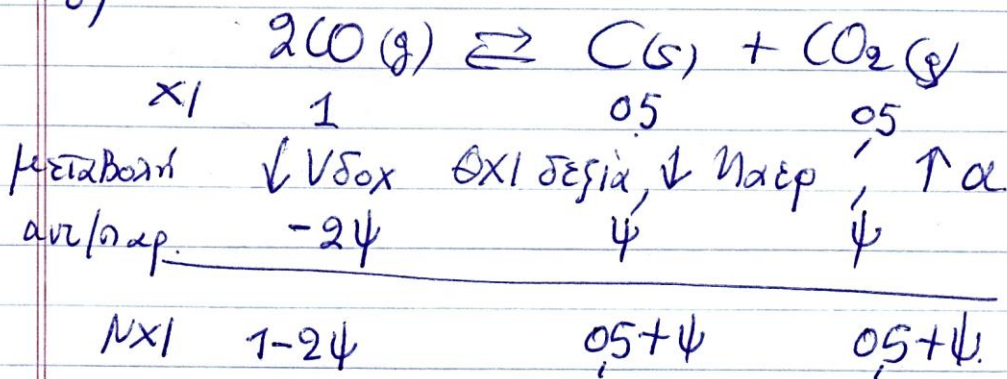 2CO(g) ⇄ C(s) + CO₂(g)
ΧΙ 1 0,5 0,5
μεταβολή ↓Vδοχ ΘΧΙ δεξιά, ↓ nαερ, ↑α
αντ/παρ. -2ψ ψ ψ
ΝΧΙ 1-2ψ 0,5+ψ 0,5+ψ.